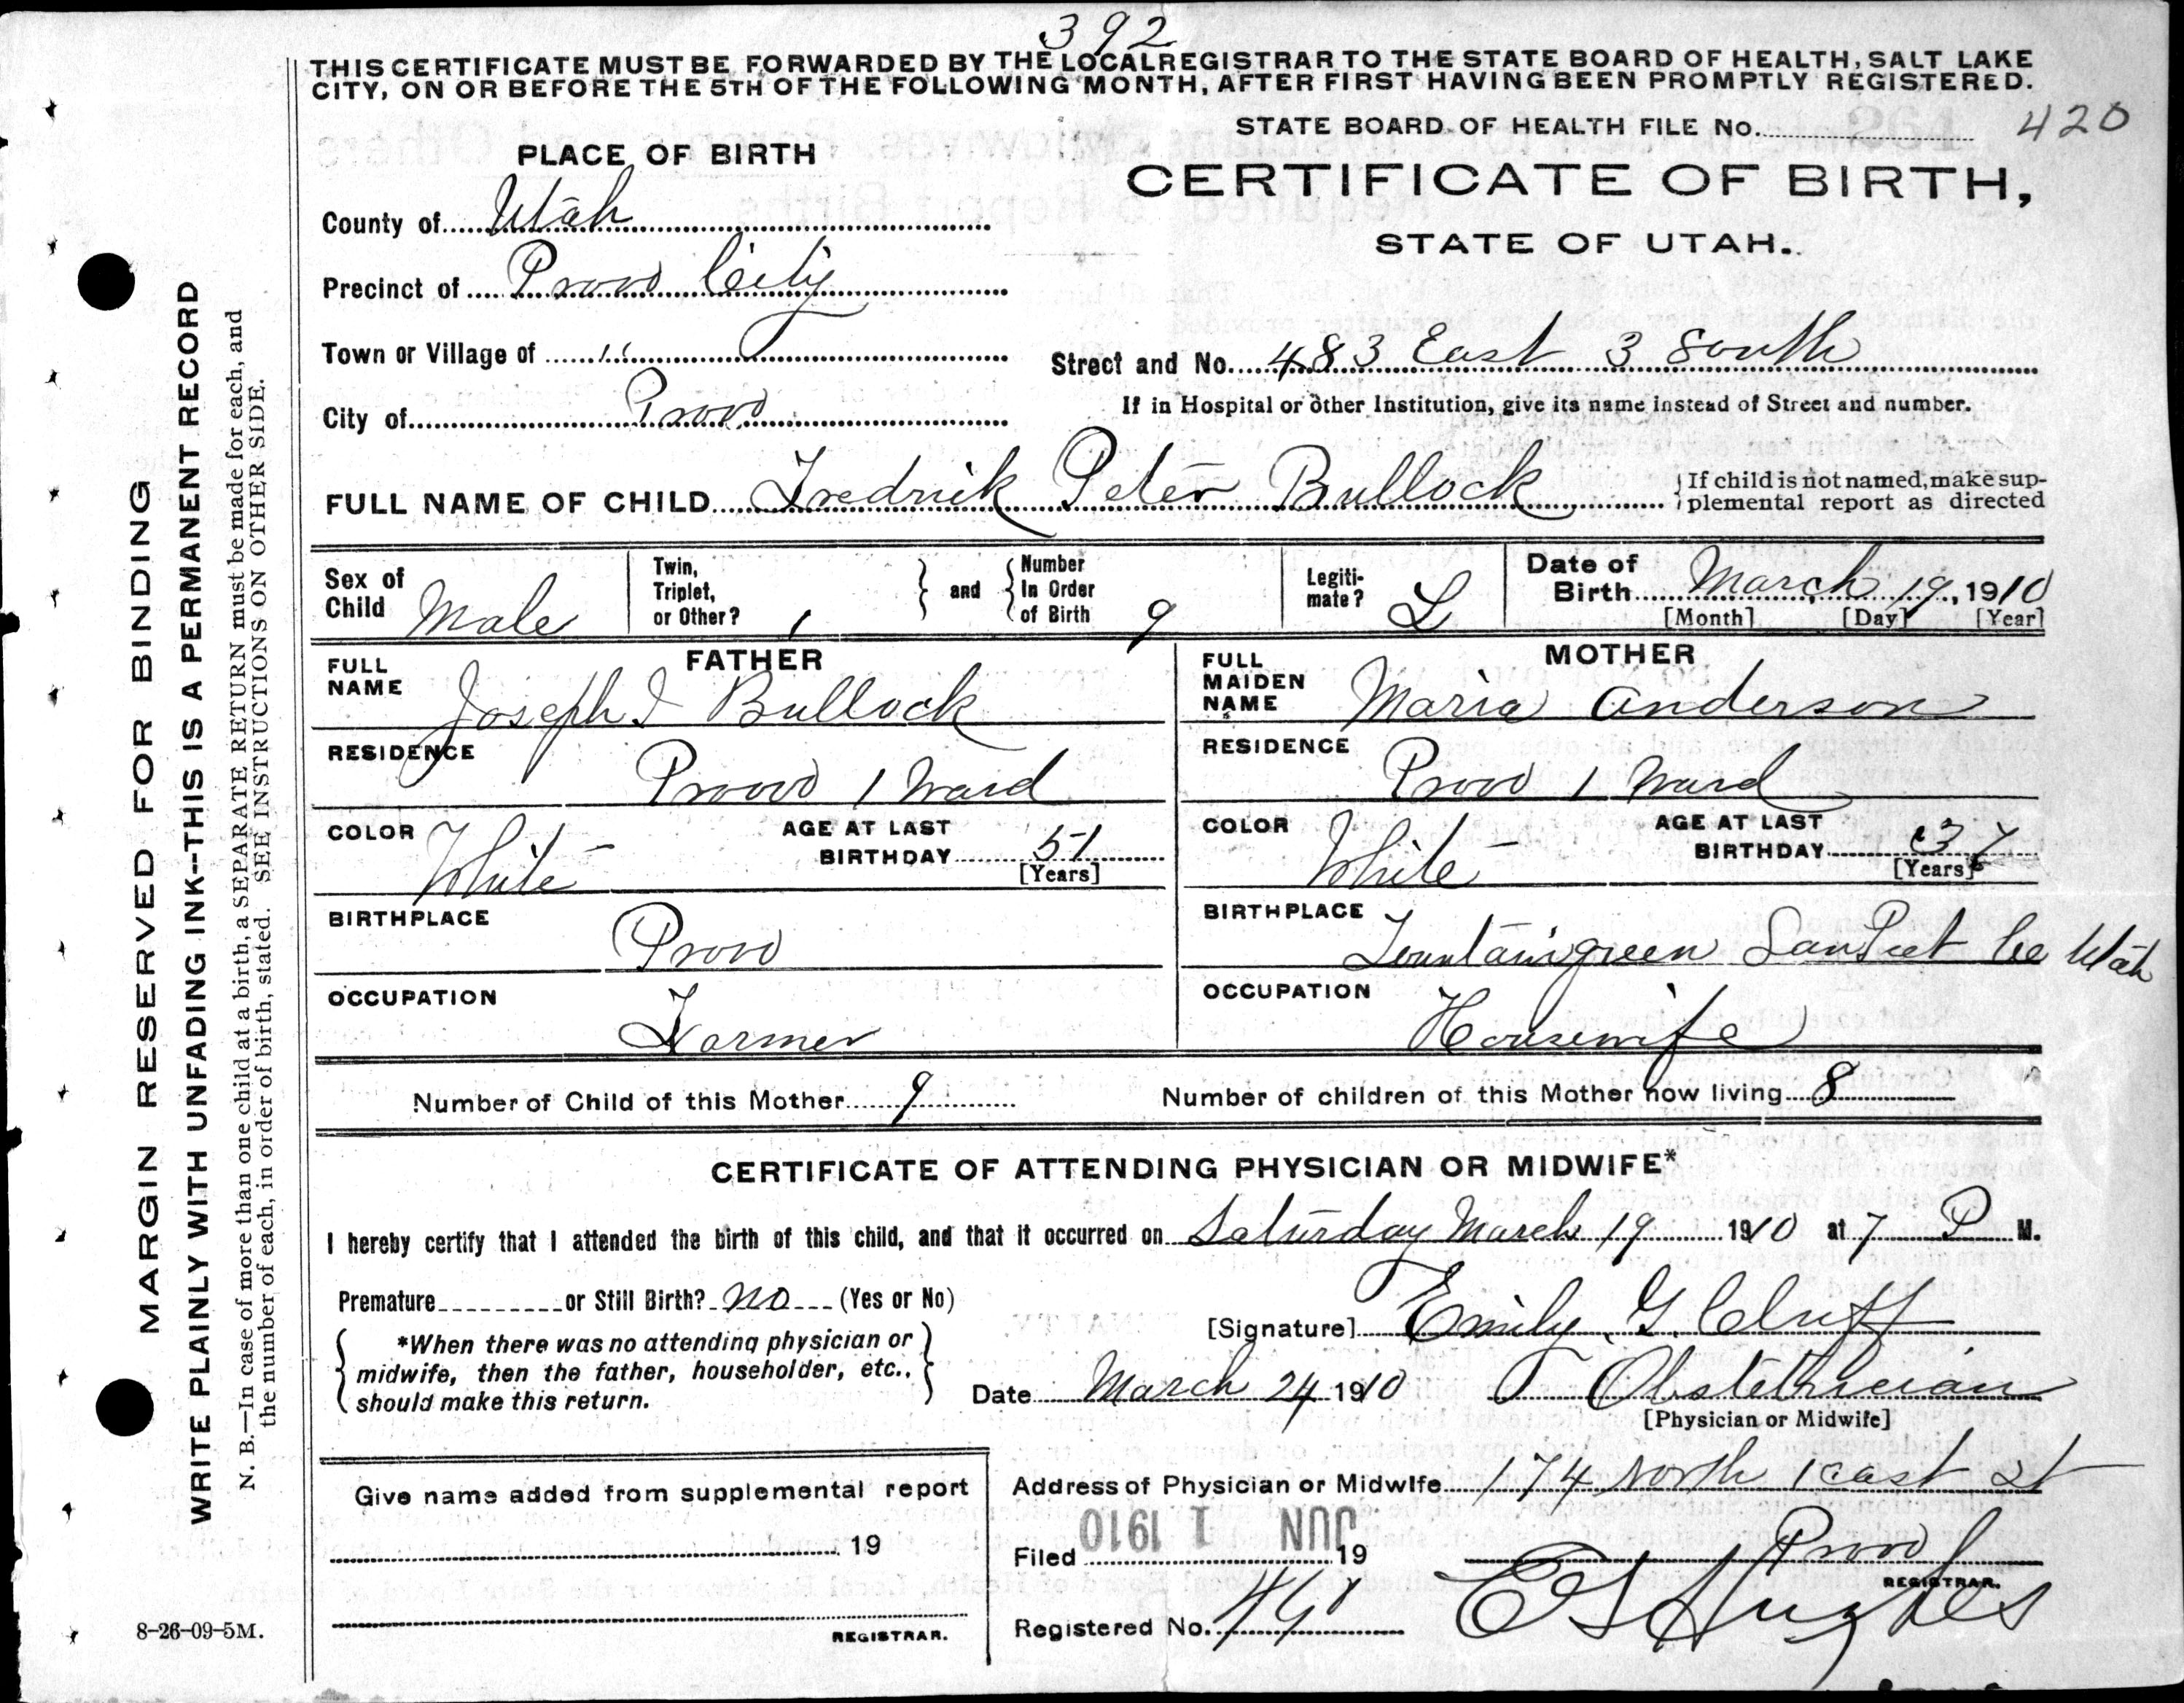 392
THIS CERTIFICATE MUST BE FORWARDED BY THE LOCAL REGISTRAR TO THE STATE BOARD OF HEALTH, SALT LAKE
CITY, ON OR BEFORE THE 5TH OF THE FOLLOWING MONTH, AFTER FIRST HAVING BEEN PROMPTLY REGISTERED.
STATE BOARD OF HEALTH FILE No. 420
PLACE OF BIRTH
CERTIFICATE OF BIRTH,
STATE OF UTAH.
County of Utah
Precinct of Provo City
Town or Village of "
Street and No. 483 East 3 South
City of Provo
If in Hospital or other Institution, give its name instead of Street and number.
FULL NAME OF CHILD Fredrick Peter Bullock
If child is not named, make sup-
plemental report as directed
Sex of Child Male
Twin, Triplet, or Other? 1
and
Number In Order of Birth 9
Legiti-mate? L
Date of Birth March 19, 1910
[Month] [Day] [Year]
FATHER
FULL NAME Joseph I Bullock
RESIDENCE Provo 1 Ward
COLOR White
AGE AT LAST BIRTHDAY 51
[Years]
BIRTHPLACE Provo
OCCUPATION Farmer
MOTHER
FULL MAIDEN NAME Maria Anderson
RESIDENCE Provo 1 Ward
COLOR White
AGE AT LAST BIRTHDAY 37
[Years]
BIRTHPLACE Fountaingreen SanPeet Co Utah
OCCUPATION Housewife
Number of Child of this Mother 9
Number of children of this Mother now living 8
CERTIFICATE OF ATTENDING PHYSICIAN OR MIDWIFE*
I hereby certify that I attended the birth of this child, and that it occurred on Saturday March 19 1910 at 7 P M.
Premature or Still Birth? no (Yes or No)
*When there was no attending physician or
midwife, then the father, householder, etc.,
should make this return.
[Signature] Emily G. Cluff
Date March 24 1910
Obstethrician
[Physician or Midwife]
Give name added from supplemental report
19
REGISTRAR.
Address of Physician or Midwife 174 North 1 east st
Provo
JUN 1 1910
Filed 19
E G Hughes
REGISTRAR.
Registered No.
MARGIN RESERVED FOR BINDING
WRITE PLAINLY WITH UNFADING INK--THIS IS A PERMANENT RECORD
N. B.—In case of more than one child at a birth, a SEPARATE RETURN must be made for each, and
the number of each, in order of birth, stated. SEE INSTRUCTIONS ON OTHER SIDE.
8-26-09-5M.